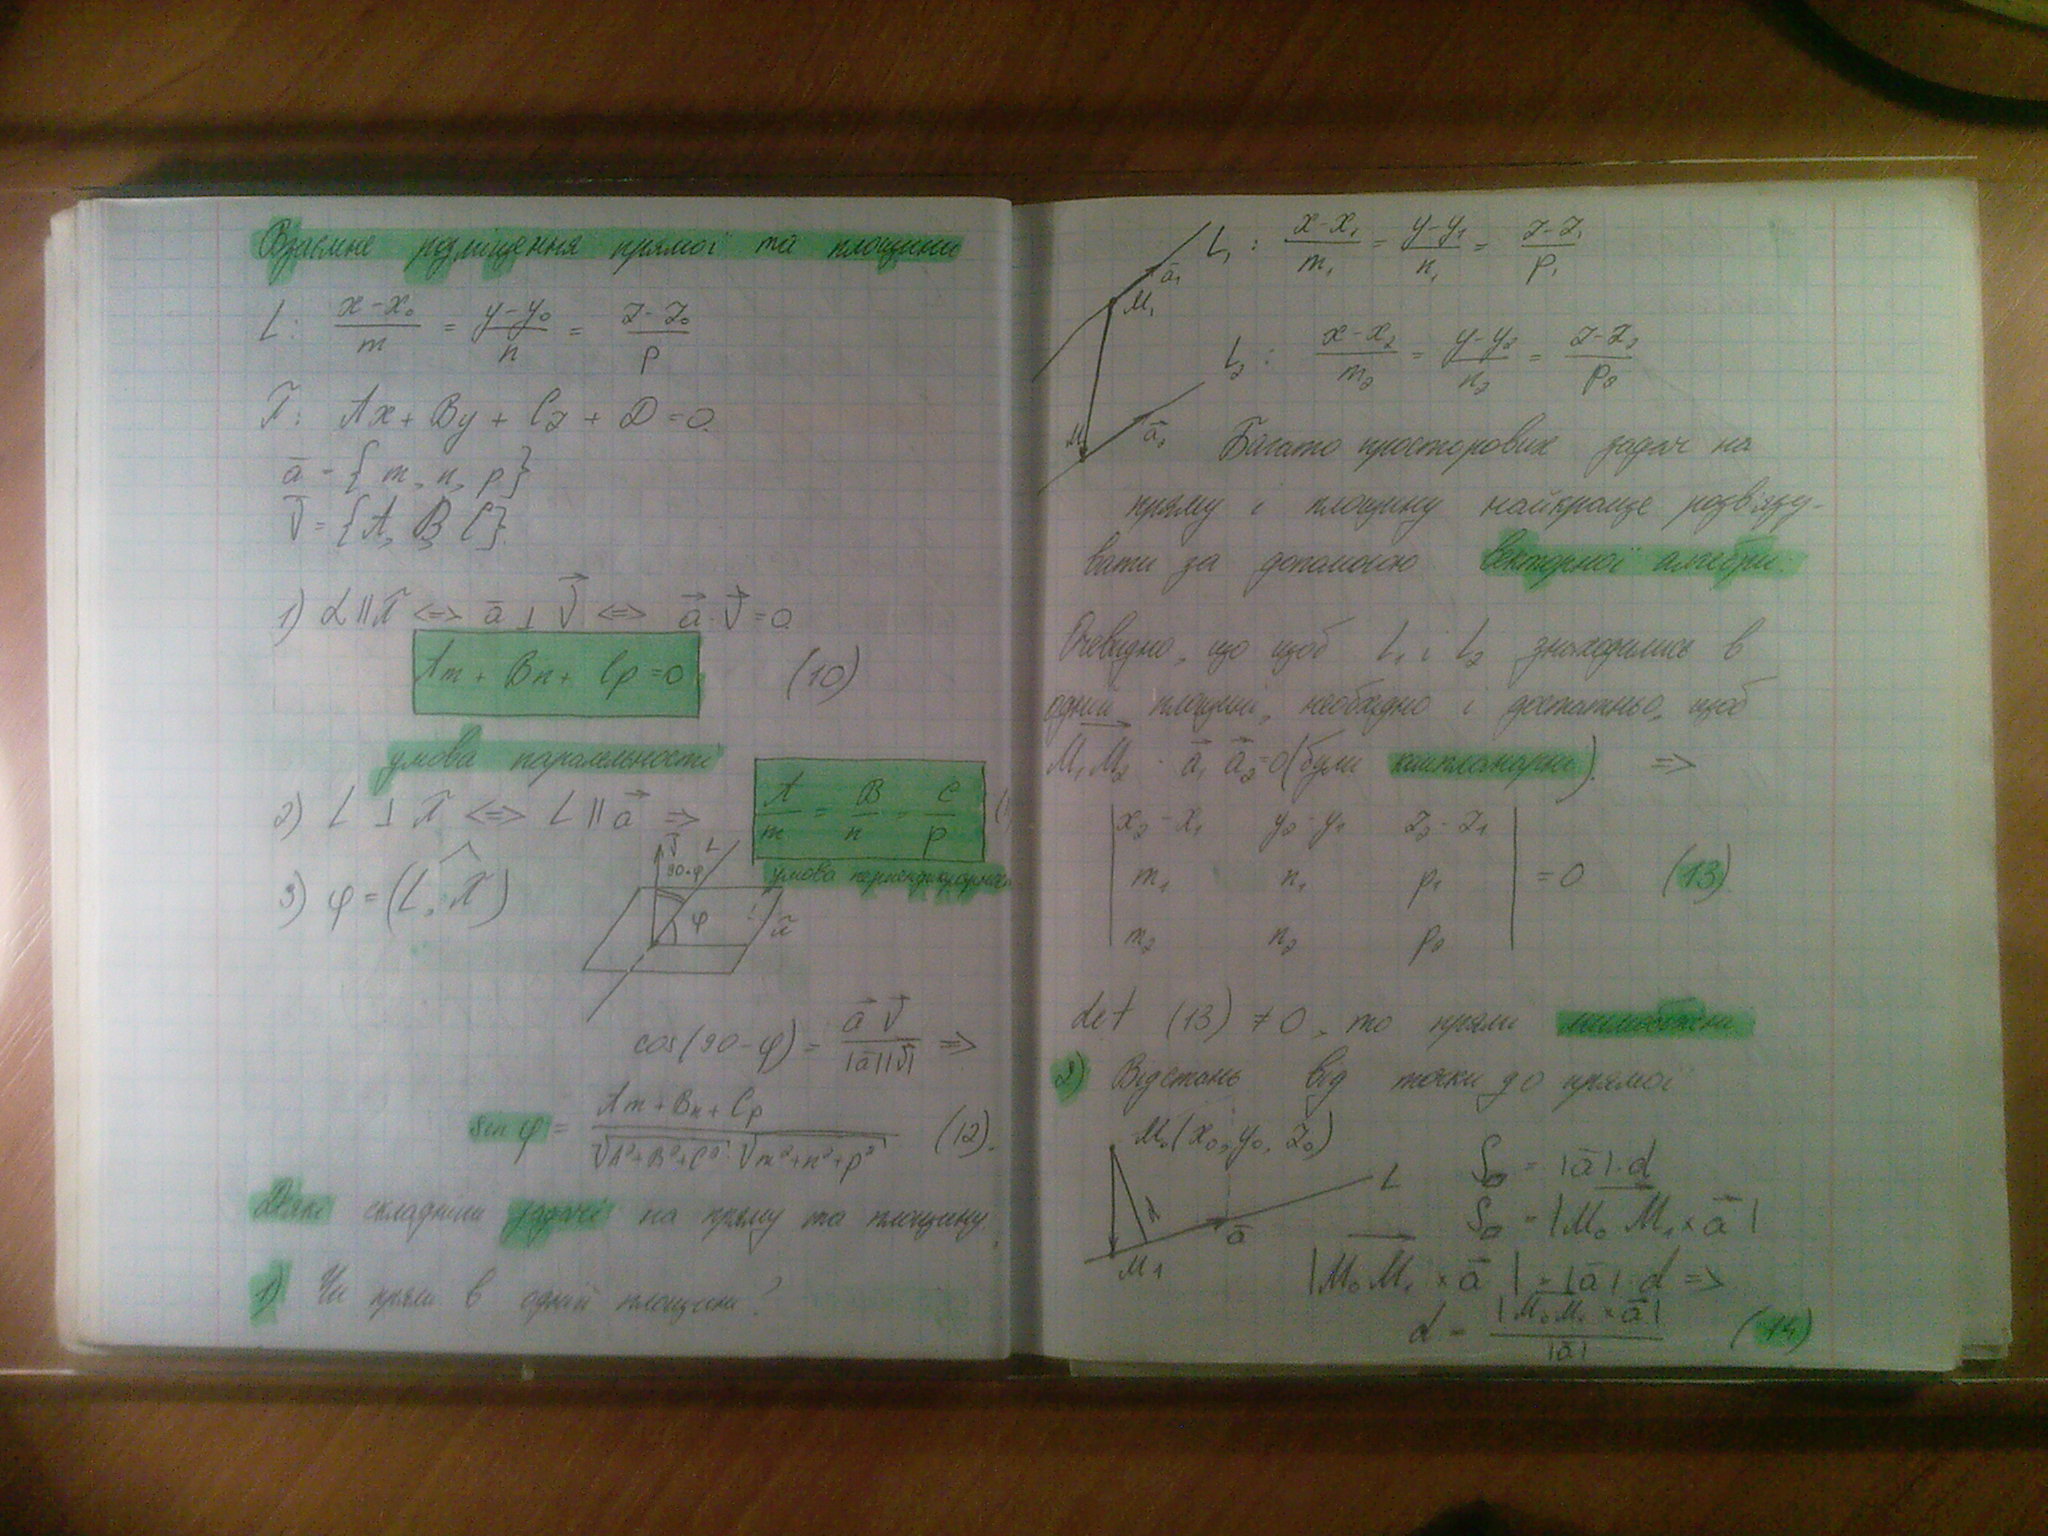 Взаємне розміщення прямої та площини
L: (x-x₀)/m = (y-y₀)/n = (z-z₀)/p
π: Ax + By + Cz + D = 0.
ā = {m, n, p}
V̄ = {A, B, C}.
1) L || π <=> ā ⊥ V⃗ <=> a⃗·V⃗ = 0
Am + Bn + Cp = 0 (10)
умова паралельності
2) L ⊥ π <=> L || a⃗ => A/m = B/n = C/p
умова перпендикулярності
3) φ = (L, π)
V L
90-φ
φ
π
cos(90-φ) = a⃗ V⃗ / |ā||V̄| =>
sin φ = (Am + Bn + Cp) / (√A²+B²+C² · √m²+n²+p²) (12).
Деякі складніші задачі на пряму та площину.
1) Чи прямі в одній площині?
L₁: (x-x₁)/m₁ = (y-y₁)/n₁ = (z-z₁)/p₁
ā₁
M₁
L₂: (x-x₂)/m₂ = (y-y₂)/n₂ = (z-z₂)/p₂
ā₂
Багато просторових задач на
пряму і площину найкраще розв'язу-
вати за допомогою векторної алгебри.
Очевидно, що щоб L₁ і L₂ знаходились в
одній площині, необхідно і достатньо, щоб
M₁M₂ · a⃗₁ a⃗₂ = 0 (були компланарні). =>
| x₂-x₁ y₂-y₁ z₂-z₁ |
| m₁ n₁ p₁ | = 0 (13)
| m₂ n₂ p₂ |
det (13) ≠ 0, то прямі мимобіжні
2) Відстань від точки до прямої
M₀(x₀, y₀, z₀)
d
L
ā
M₁
S▱ = |ā|·d
S▱ = |M₀M₁ × ā|
|M₀M₁ × ā| = |ā|·d =>
d = |M₀M₁ × ā| / |ā| (14)